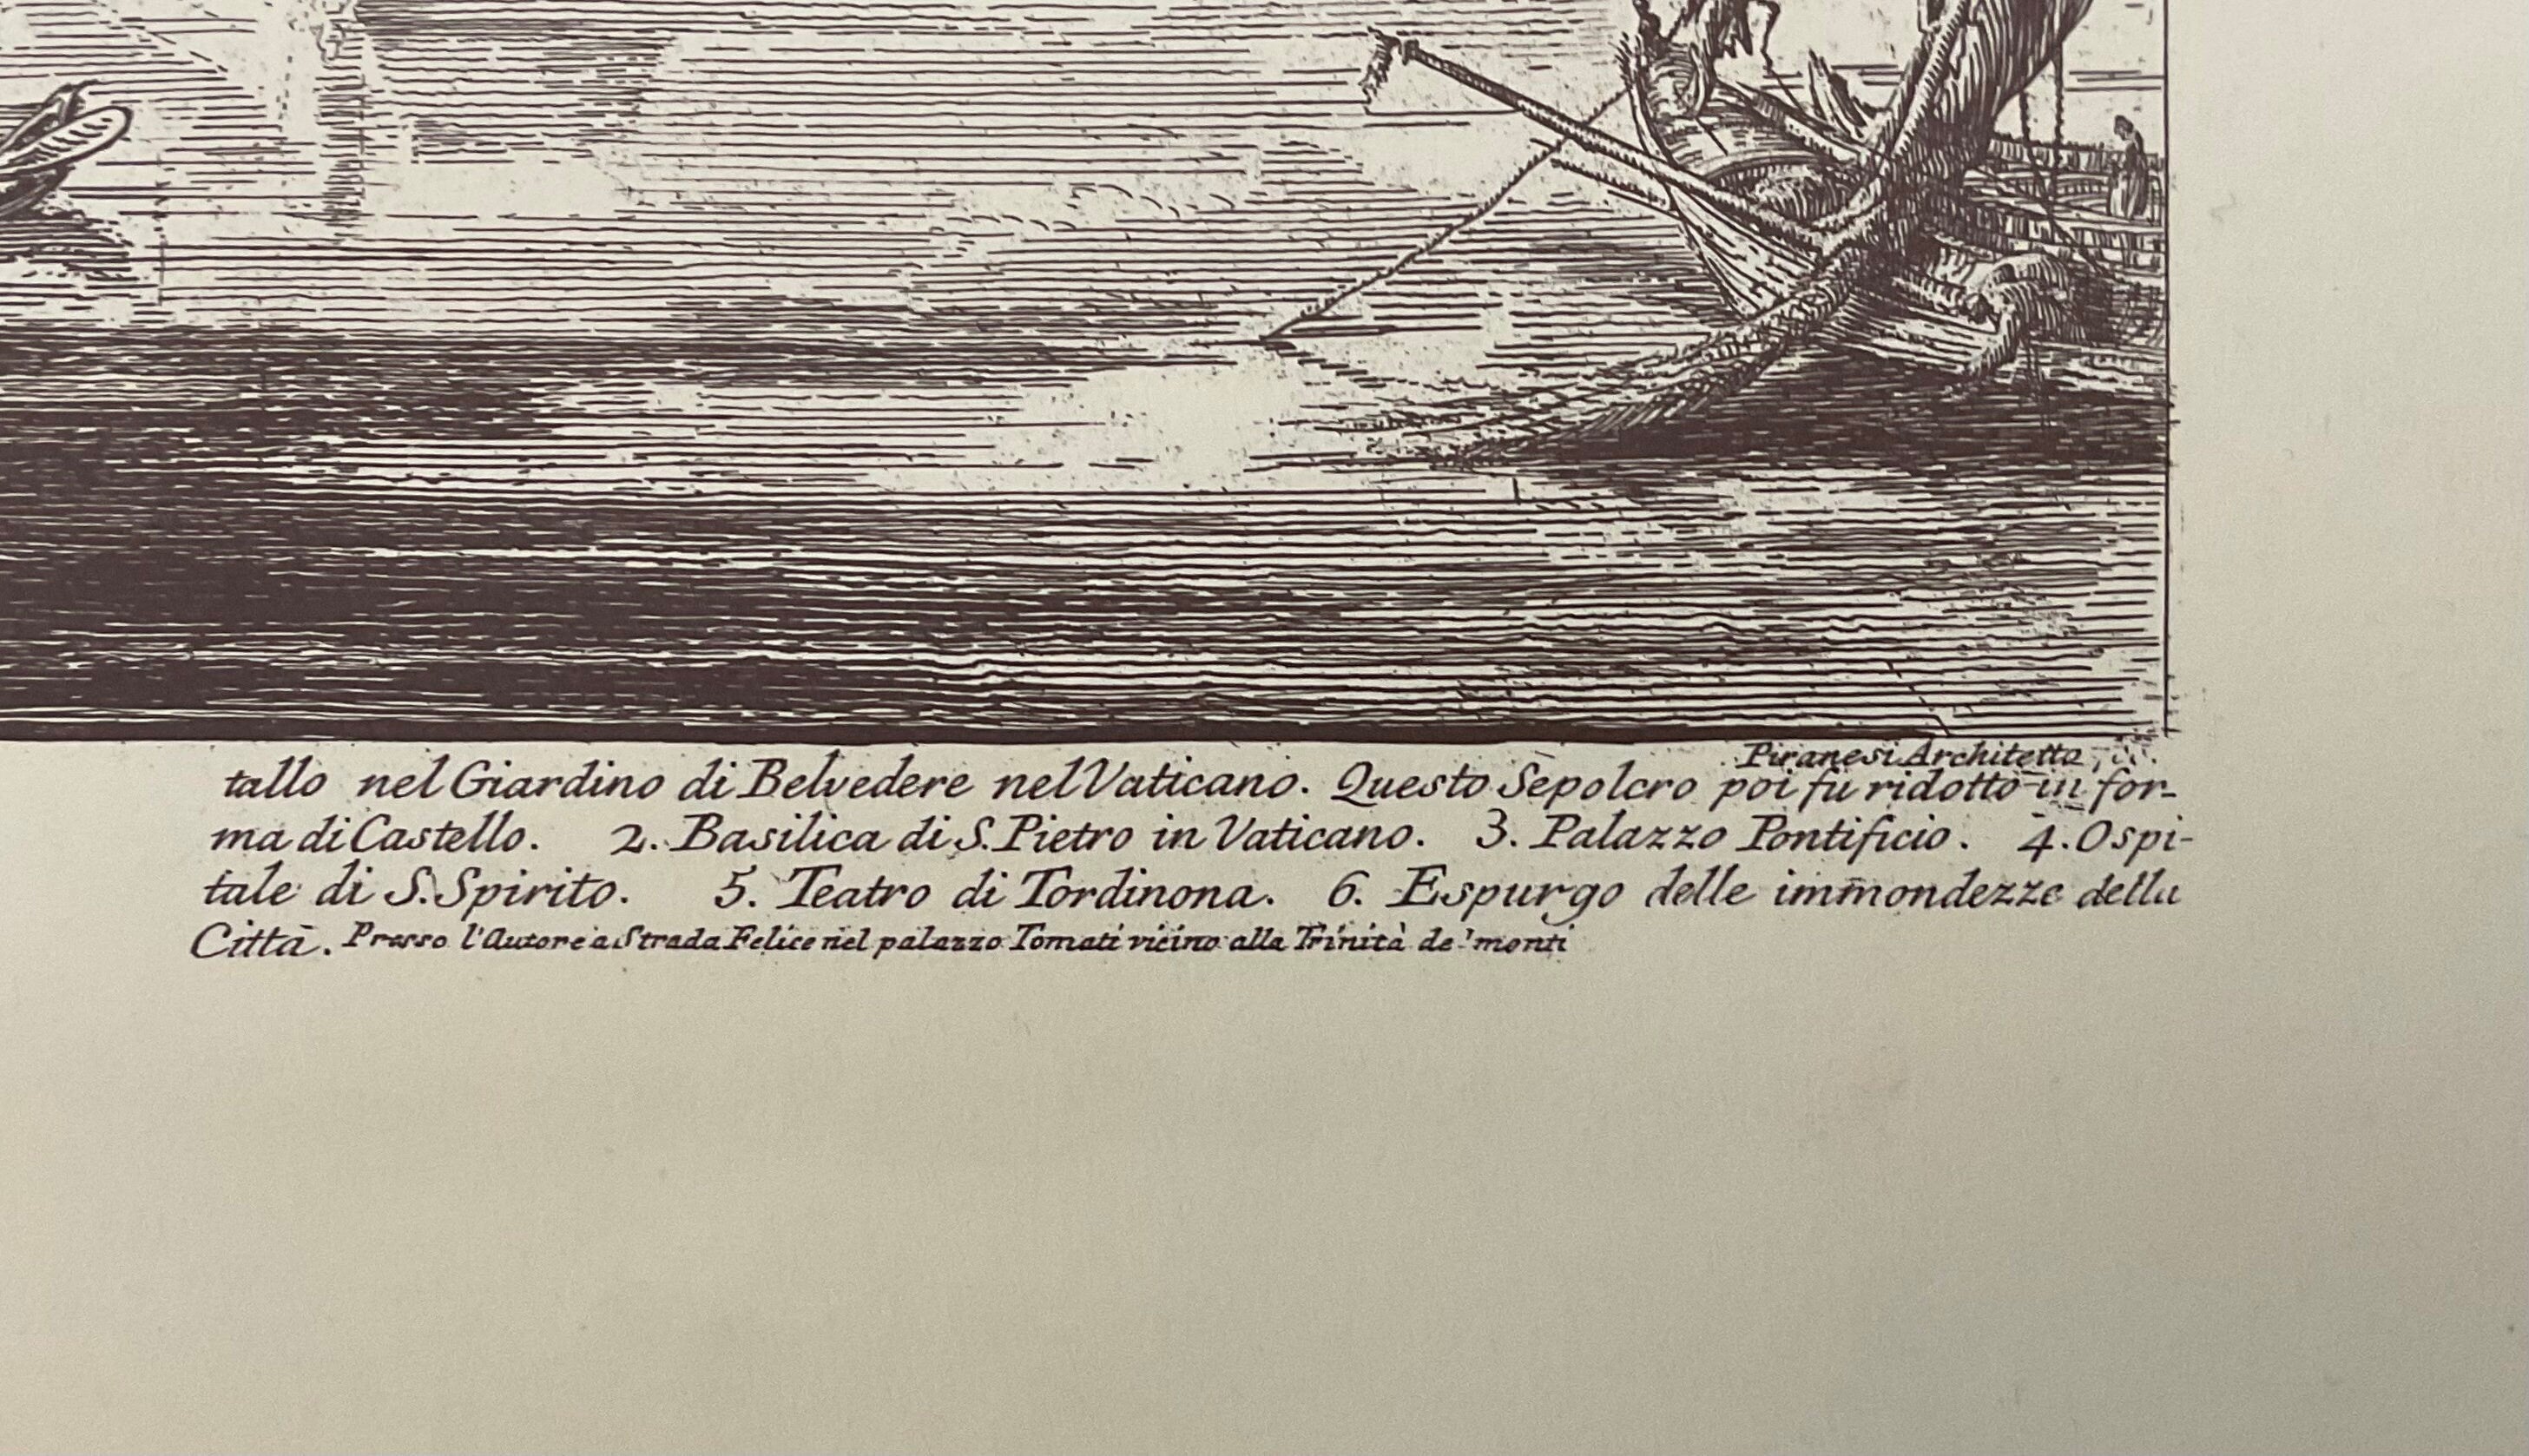 Piranesi Architetto
tallo nel Giardino di Belvedere nel Vaticano. Questo Sepolcro poi fù ridotto in for-
ma di Castello. 2. Basilica di S. Pietro in Vaticano. 3. Palazzo Pontificio. 4. Ospi-
tale di S. Spirito. 5. Teatro di Tordinona. 6. Espurgo delle immondezze della
Città. Presso l'Autore a Strada Felice nel palazzo Tomati vicino alla Trinità de' monti